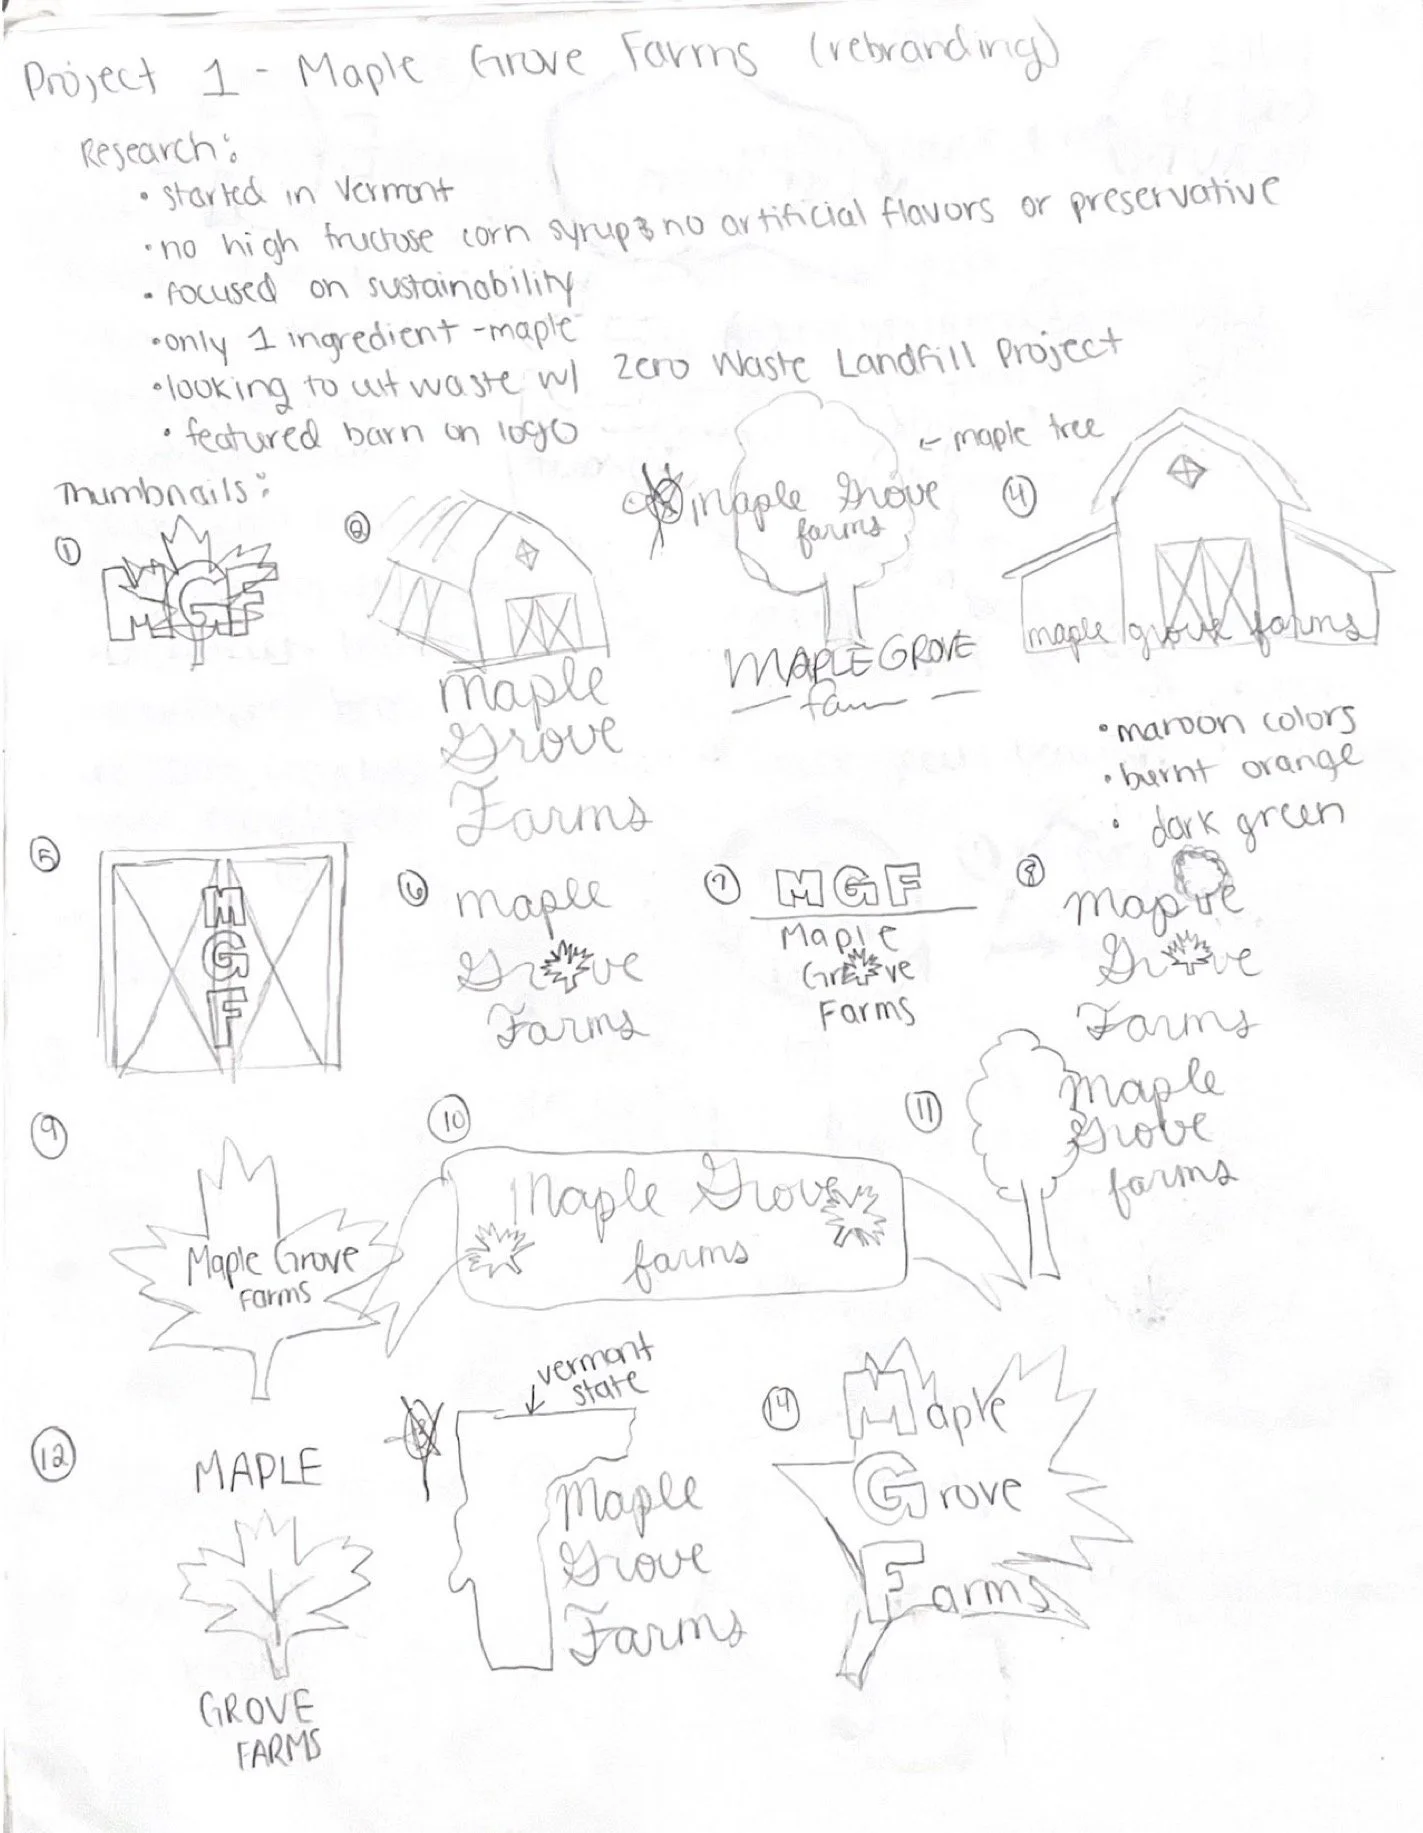 Project 1 - Maple Grove Farms (rebranding)
Research:
• started in Vermont
• no high fructose corn syrup & no artificial flavors or preservative
• focused on sustainability
• only 1 ingredient - maple
• looking to cut waste w/ Zero Waste Landfill Project
• featured barn on logo
Thumbnails:
1
MGF
2
Maple
Grove
Farms
← maple tree
Maple Grove
farms
MAPLE GROVE
4
maple grove farms
• maroon colors
• burnt orange
• dark green
5
M
G
F
6
Maple
Grve
Farms
7
MGF
Maple
Grve
Farms
8
Maple
Grve
Farms
9
Maple Grove
Farms
10
Maple Grove
farms
11
Maple
Grove
farms
12
MAPLE
GROVE
FARMS
13
vermont
state
Maple
Grove
Farms
14
Maple
Grove
Farms